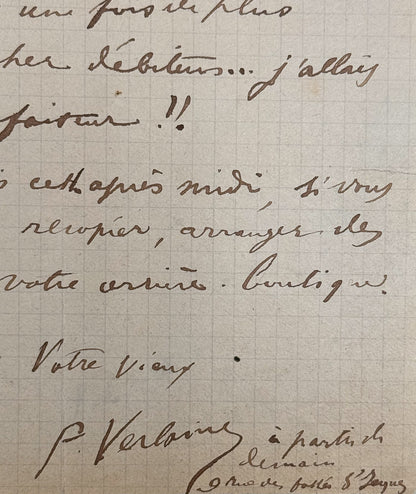 une fois de plus
cher débiteur... j'allais
faiteur !!
cett après midi, si vous
recopier, arranger des
votre arrière-boutique.
Votre vieux
P. Verlaine
à partir de
demain
9 rue des fossés St Jacques